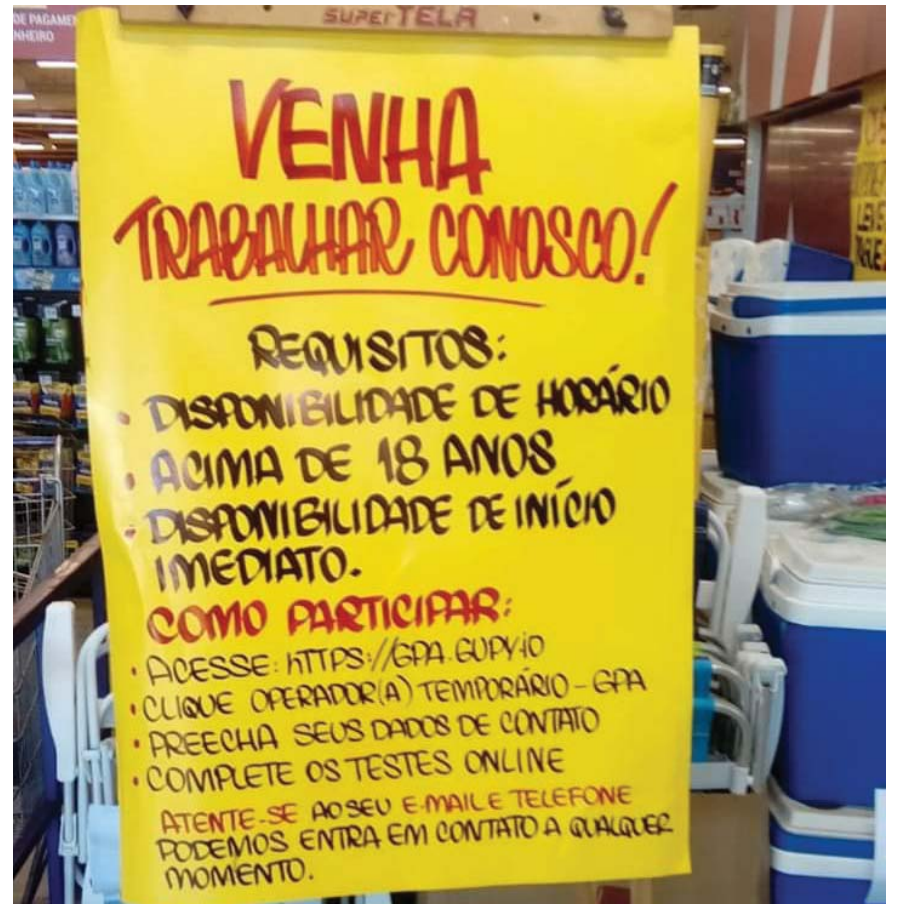 DE PAGAMEN
NHEIRO
SUPERTELA
VENHA
TRABALHAR CONOSCO!
REQUISITOS:
• DISPONIBILIDADE DE HORÁRIO
• ACIMA DE 18 ANOS
• DISPONIBILIDADE DE INÍCIO
IMEDIATO.
COMO PARTICIPAR:
• ACESSE: hTTPS://GPA.GUPY.iO
• CLIQUE OPERADOR(A) TEMPORÁRIO - GPA
• PREECHA SEUS DADOS DE CONTATO
• COMPLETE OS TESTES ONLINE
ATENTE-SE AO SEU E-MAIL E TELEFONE
PODEMOS ENTRA EM CONTATO A QUALQUER
MOMENTO.